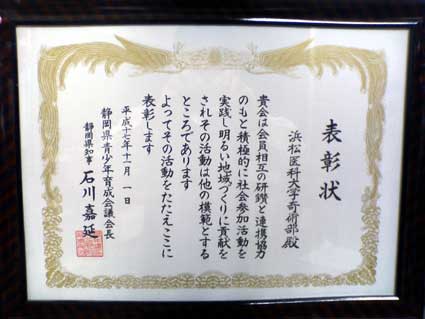 表彰状
浜松医科大学奇術部殿
貴会は会員相互の研鑽と連携協力
のもと積極的に社会参加活動を
実践し明るい地域づくりに貢献を
されその活動は他の模範とする
ところであります
よってその活動をたたえここに
表彰します
平成十七年十一月 一日
静岡県青少年育成会議会長
静岡県知事 石川嘉延